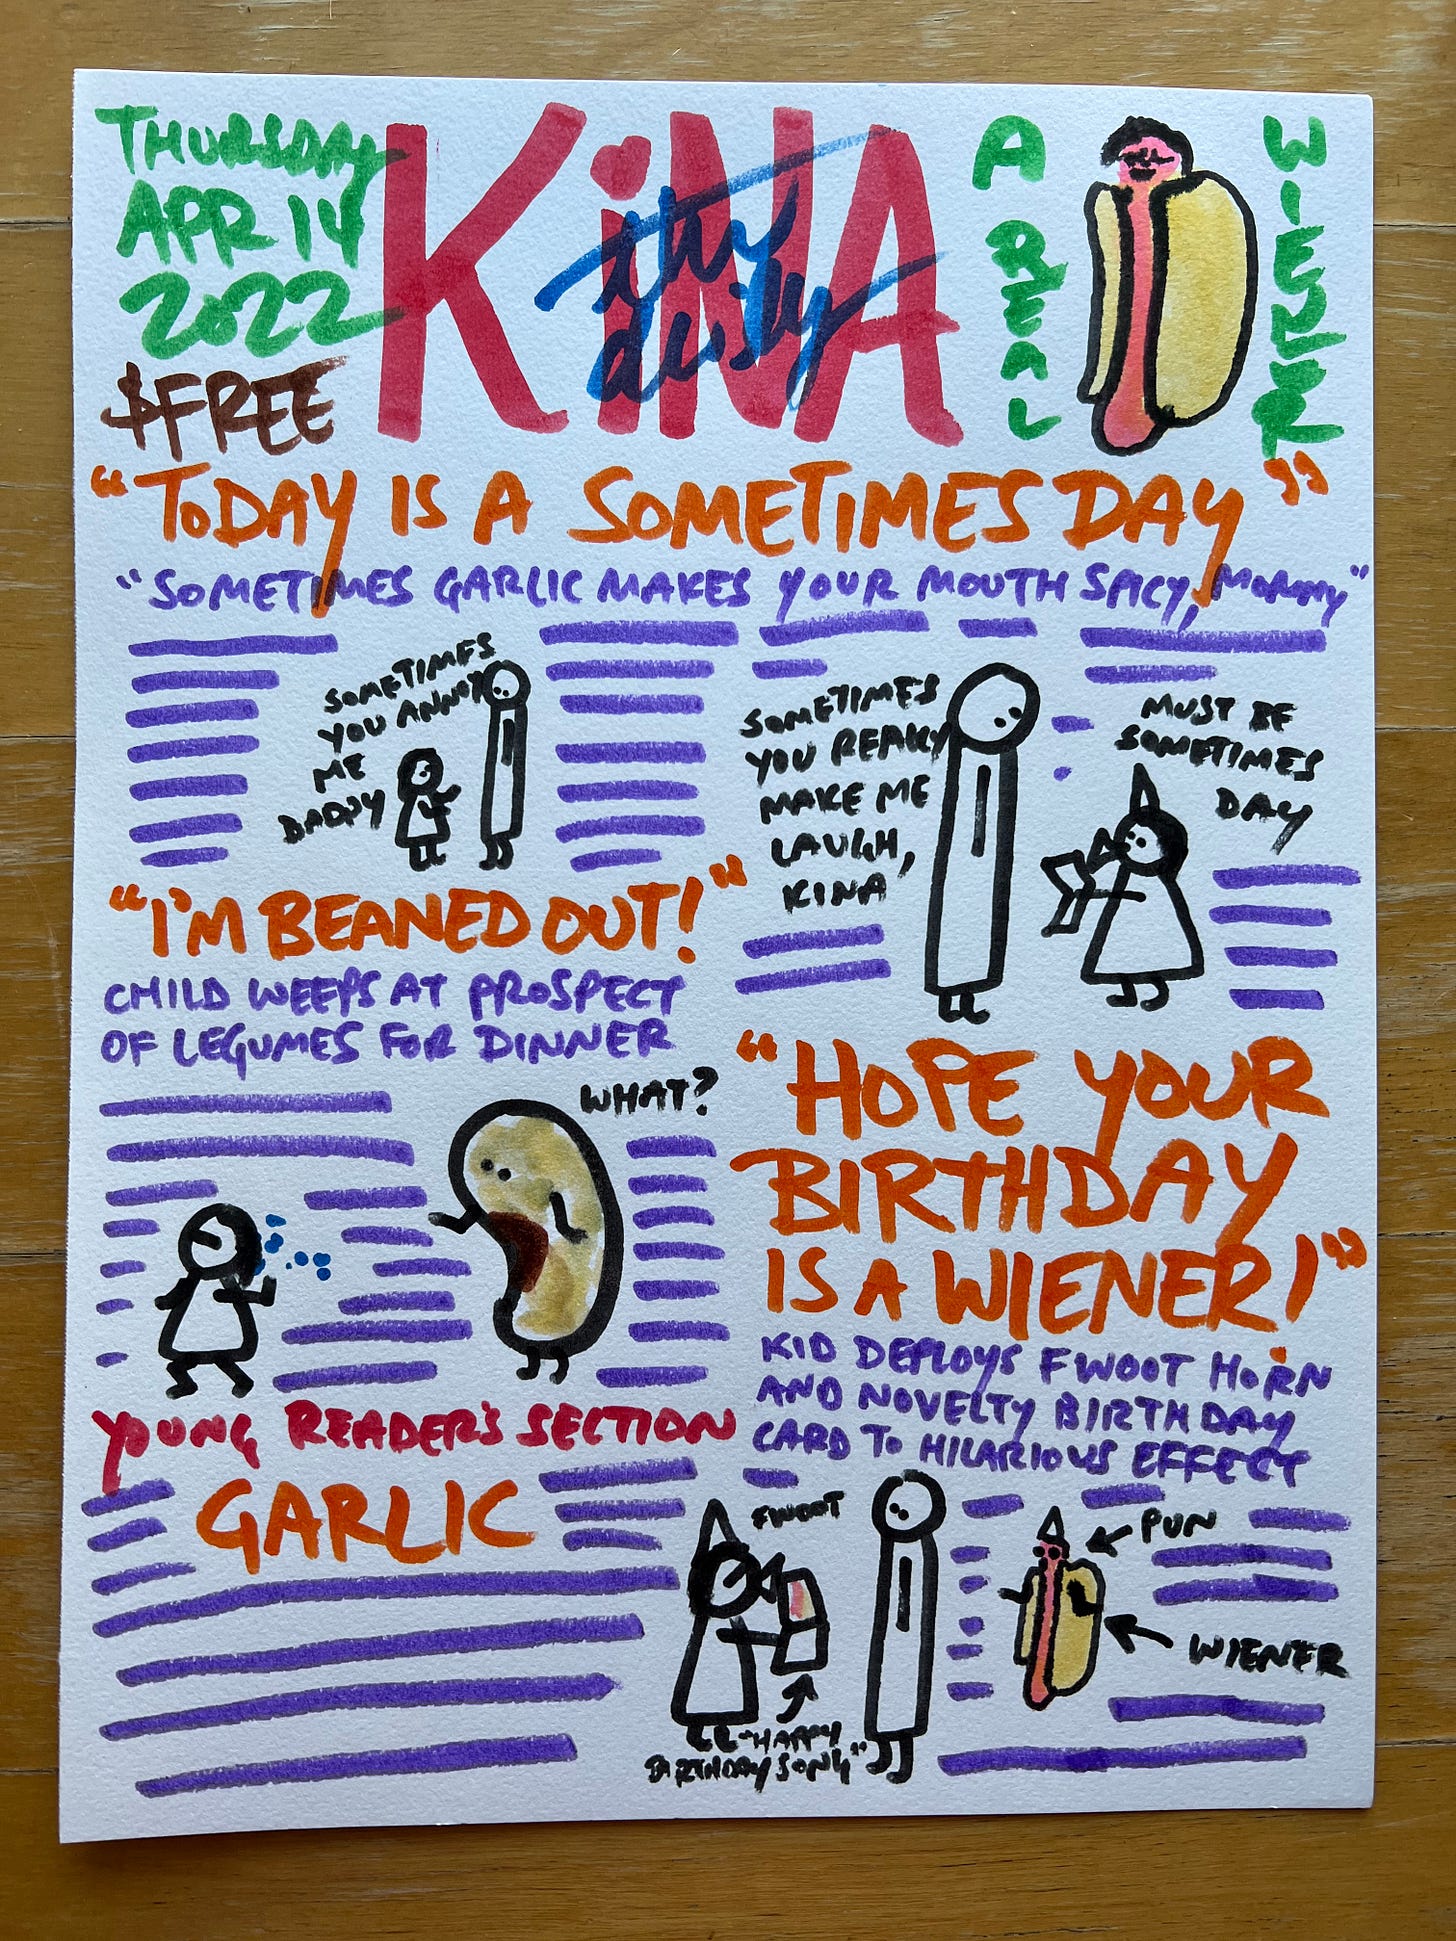 THURSDAY
APR 14
2022
$FREE
KiNA
the
daily
A REAL
WIENER
"TODAY IS A SOMETIMES DAY"
"SOMETIMES GARLIC MAKES YOUR MOUTH SPICY, MOMMY"
SOMETIMES
YOU ANNOY
ME
DADDY
SOMETIMES
YOU REALLY
MAKE ME
LAUGH,
KINA
MUST BE
SOMETIMES
DAY
"I'M BEANED OUT!"
CHILD WEEPS AT PROSPECT
OF LEGUMES FOR DINNER
WHAT?
"HOPE YOUR
BIRTHDAY
IS A WIENER!"
KID DEPLOYS FWOOT HORN
AND NOVELTY BIRTHDAY
CARD TO HILARIOUS EFFECT
FWOOT
"HAPPY
BIRTHDAY SONG"
PUN
WIENER
YOUNG READER'S SECTION
GARLIC